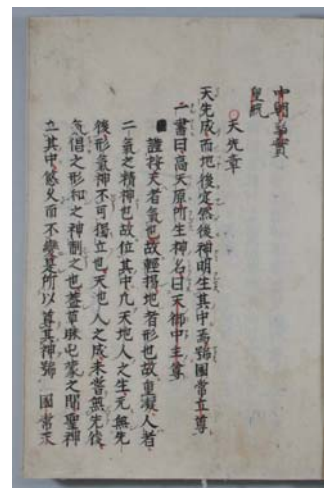 中朝事實
皇統
天先章
天先成而地後定然後神明生其中焉號國常立尊
一書曰高天原所生神名曰天御中主尊
謹按天者氣也故輕揚地者形也故重凝人者
二氣之精神也故位其中凡天地人之生元無先
後形氣神不可獨立也天地人之成未嘗無先後
氣倡之形和之神制之也蓋草昧屯蒙之間聖神
立其中悠久而不變是所以尊其神號國常